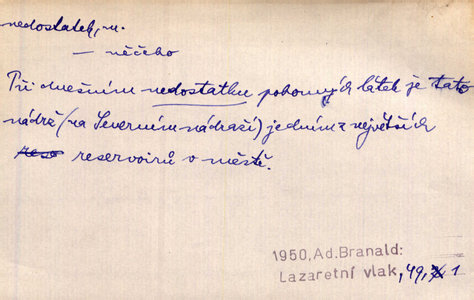 nedostatek, m.
— něčeho
Při dnešním nedostatku pohonných látek je tato
nádrž (na Severním nádraží) jedním z největších
reservoirů v městě.
1950, Ad. Branald:
Lazaretní vlak, 49, 1